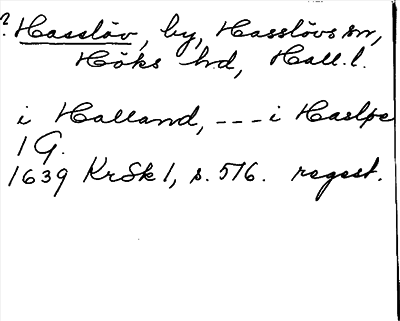 ? Hasslöv, by, Hasslövs sn,
Höks hd, Hall. l.
i Halland, --- i Haslpe
1 G.
1639 KrSk 1, s. 516. regest.